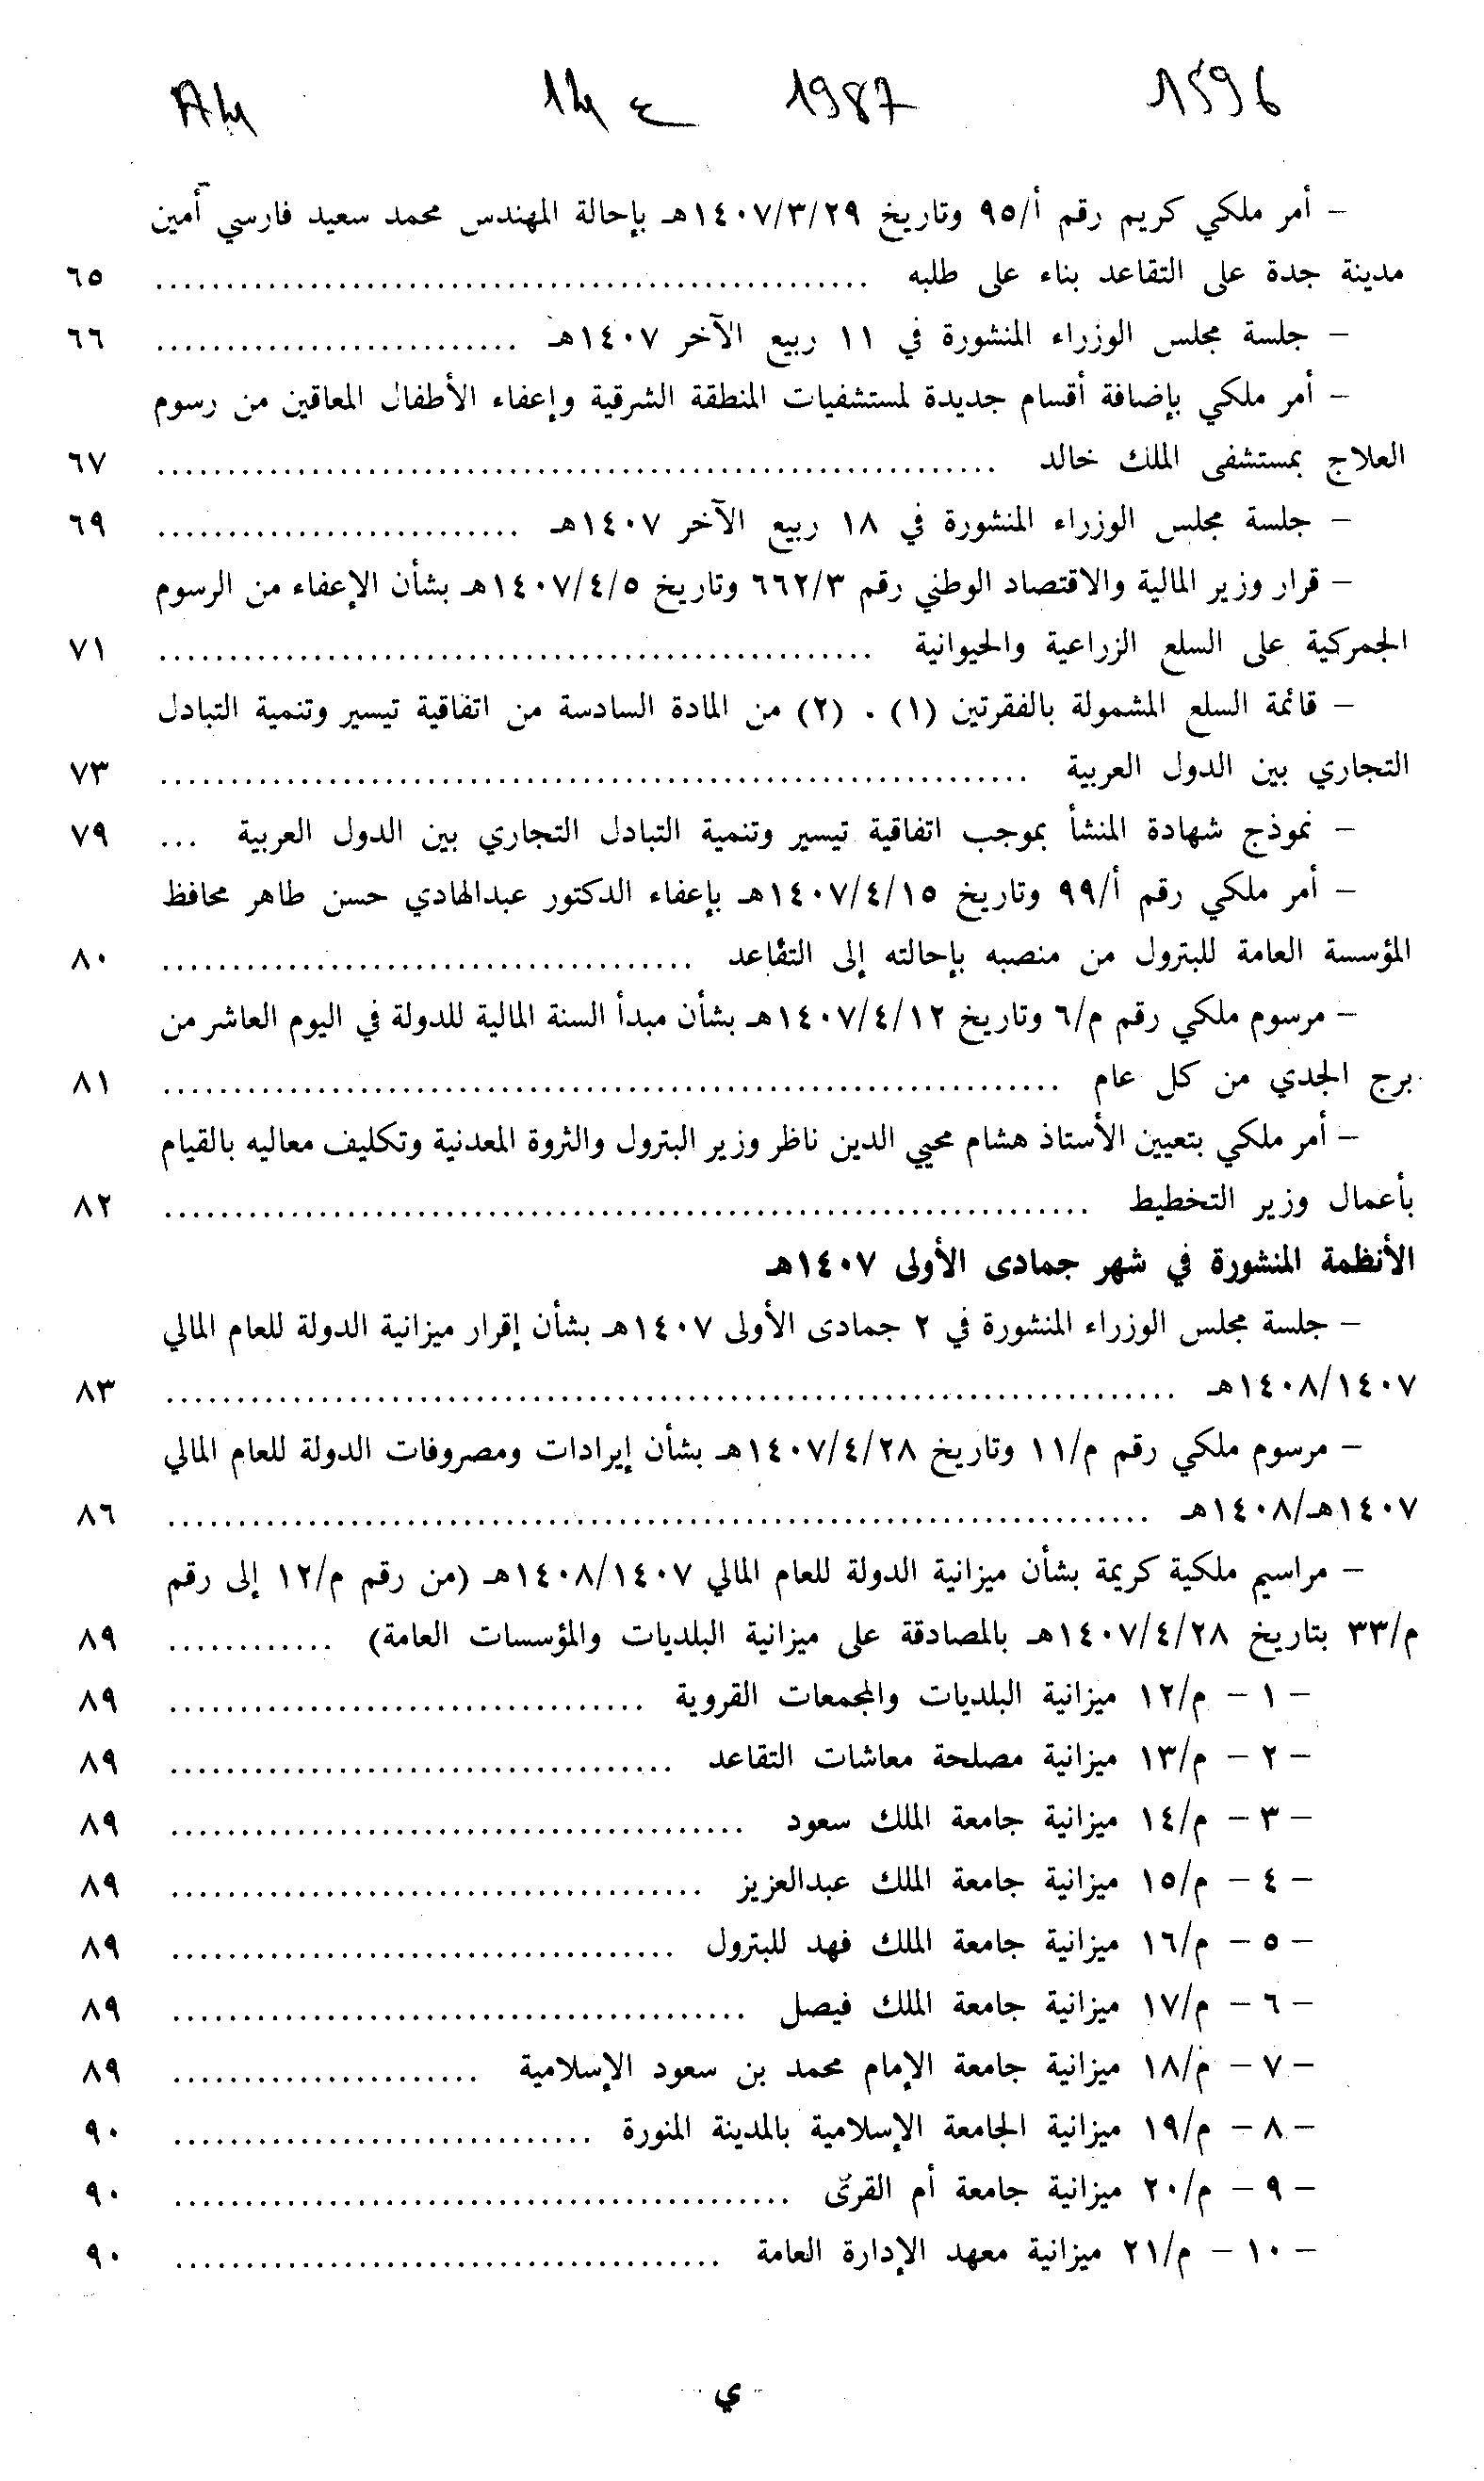 1987
- أمر ملكي كريم رقم أ/٩٥ وتاريخ ١٤٠٧/٣/٢٩هـ بإحالة المهندس محمد سعيد فارسي أمين
مدينة جدة على التقاعد بناء على طلبه .................................................... ٦٥
- جلسة مجلس الوزراء المنشورة في ١١ ربيع الآخر ١٤٠٧هـ .......................... ٦٦
- أمر ملكي بإضافة أقسام جديدة لمستشفيات المنطقة الشرقية وإعفاء الأطفال المعاقين من رسوم
العلاج بمستشفى الملك خالد ............................................................ ٦٧
- جلسة مجلس الوزراء المنشورة في ١٨ ربيع الآخر ١٤٠٧هـ .......................... ٦٩
- قرار وزير المالية والاقتصاد الوطني رقم ٦٦٢/٣ وتاريخ ١٤٠٧/٤/٥هـ بشأن الإعفاء من الرسوم
الجمركية على السلع الزراعية والحيوانية .................................................... ٧١
- قائمة السلع المشمولة بالفقرتين (١) . (٢) من المادة السادسة من اتفاقية تيسير وتنمية التبادل
التجاري بين الدول العربية .............................................................. ٧٣
- نموذج شهادة المنشأ بموجب اتفاقية تيسير وتنمية التبادل التجاري بين الدول العربية ... ٧٩
- أمر ملكي رقم أ/٩٩ وتاريخ ١٤٠٧/٤/١٥هـ بإعفاء الدكتور عبدالهادي حسن طاهر محافظ
المؤسسة العامة للبترول من منصبه بإحالته إلى التقاعد ...................................... ٨٠
- مرسوم ملكي رقم م/٦ وتاريخ ١٤٠٧/٤/١٢هـ بشأن مبدأ السنة المالية للدولة في اليوم العاشر من
برج الجدي من كل عام ................................................................ ٨١
- أمر ملكي بتعيين الأستاذ هشام محيي الدين ناظر وزير البترول والثروة المعدنية وتكليف معاليه بالقيام
بأعمال وزير التخطيط .................................................................. ٨٢
الأنظمة المنشورة في شهر جمادى الأولى ١٤٠٧هـ
- جلسة مجلس الوزراء المنشورة في ٢ جمادى الأولى ١٤٠٧هـ بشأن إقرار ميزانية الدولة للعام المالي
١٤٠٨/١٤٠٧هـ ........................................................................ ٨٣
- مرسوم ملكي رقم م/١١ وتاريخ ١٤٠٧/٤/٢٨هـ بشأن إيرادات ومصروفات الدولة للعام المالي
١٤٠٧هـ/١٤٠٨هـ ...................................................................... ٨٦
- مراسيم ملكية كريمة بشأن ميزانية الدولة للعام المالي ١٤٠٨/١٤٠٧هـ (من رقم م/١٢ إلى رقم
م/٣٣ بتاريخ ١٤٠٧/٤/٢٨هـ بالمصادقة على ميزانية البلديات والمؤسسات العامة) ............ ٨٩
- ١ - م/١٢ ميزانية البلديات والمجمعات القروية .................................. ٨٩
- ٢ - م/١٣ ميزانية مصلحة معاشات التقاعد .................................... ٨٩
- ٣ - م/١٤ ميزانية جامعة الملك سعود ......................................... ٨٩
- ٤ - م/١٥ ميزانية جامعة الملك عبدالعزيز ...................................... ٨٩
- ٥ - م/١٦ ميزانية جامعة الملك فهد للبترول .................................... ٨٩
- ٦ - م/١٧ ميزانية جامعة الملك فيصل ......................................... ٨٩
- ٧ - م/١٨ ميزانية جامعة الإمام محمد بن سعود الإسلامية ...................... ٨٩
- ٨ - م/١٩ ميزانية الجامعة الإسلامية بالمدينة المنورة .............................. ٩٠
- ٩ - م/٢٠ ميزانية جامعة أم القرى ............................................ ٩٠
- ١٠ - م/٢١ ميزانية معهد الإدارة العامة ....................................... ٩٠
ي